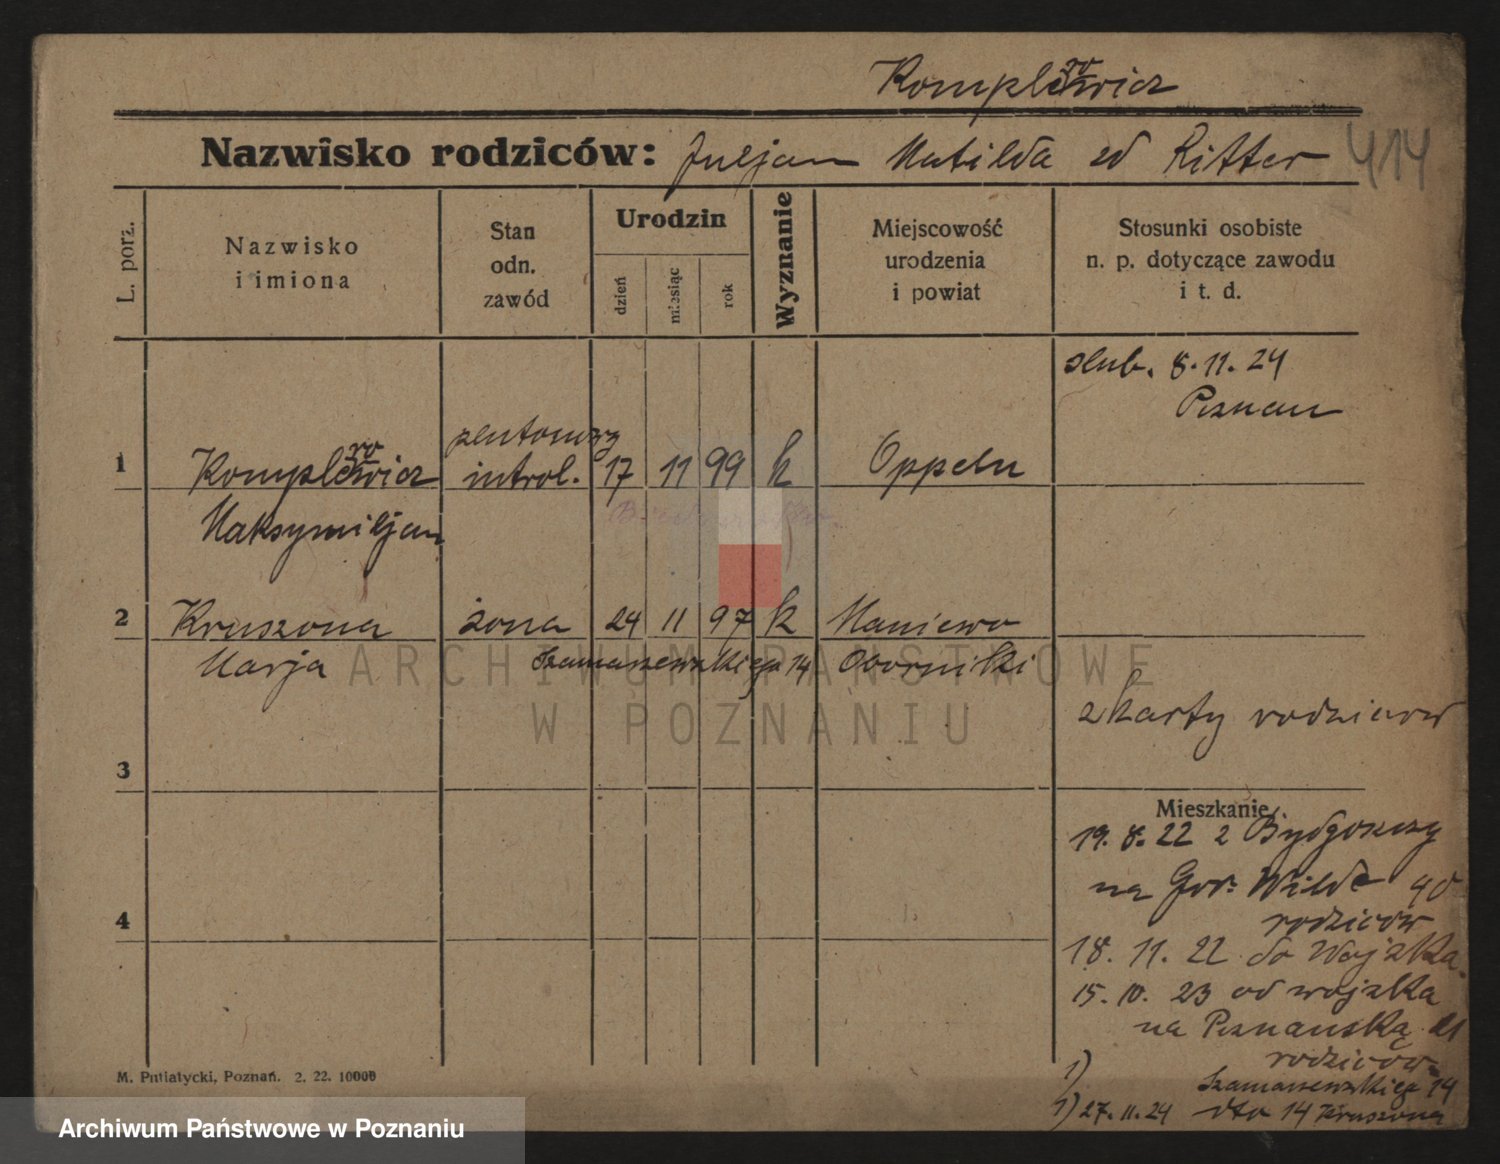 Komplerowicz
Nazwisko rodziców: Juljan Matilda zd Ritter 414
L. porz.
Nazwisko i imiona
Stan odn. zawód
Urodzin
dzień
miesiąc
rok
Wyznanie
Miejscowość urodzenia i powiat
Stosunki osobiste n. p. dotyczące zawodu i t. d.
slub. 8.11.24
Poznan
1 Komplerowicz plutonowy introl. 17 11 99 k Oppeln
Maksymiljan
2 Kruszona żona 24 11 97 k Maniewo
Marja Szamarzewskiego 14 Oborniki
ARCHIWUM PAŃSTWOWE
W POZNANIU
z karty rodziców
3
Mieszkanie
19. 8. 22 z Bydgoszczy
na Gór. Wilde 40
rodziców
4
18. 11. 22 do Wojska.
15. 10. 23 od wojska
na Poznanską 21
rodziców
1) Szamarzewskiego 14
1) 27. 11. 24 dto 14 Kruszona
M. Putiatycki, Poznań. 2. 22. 10000
Archiwum Państwowe w Poznaniu